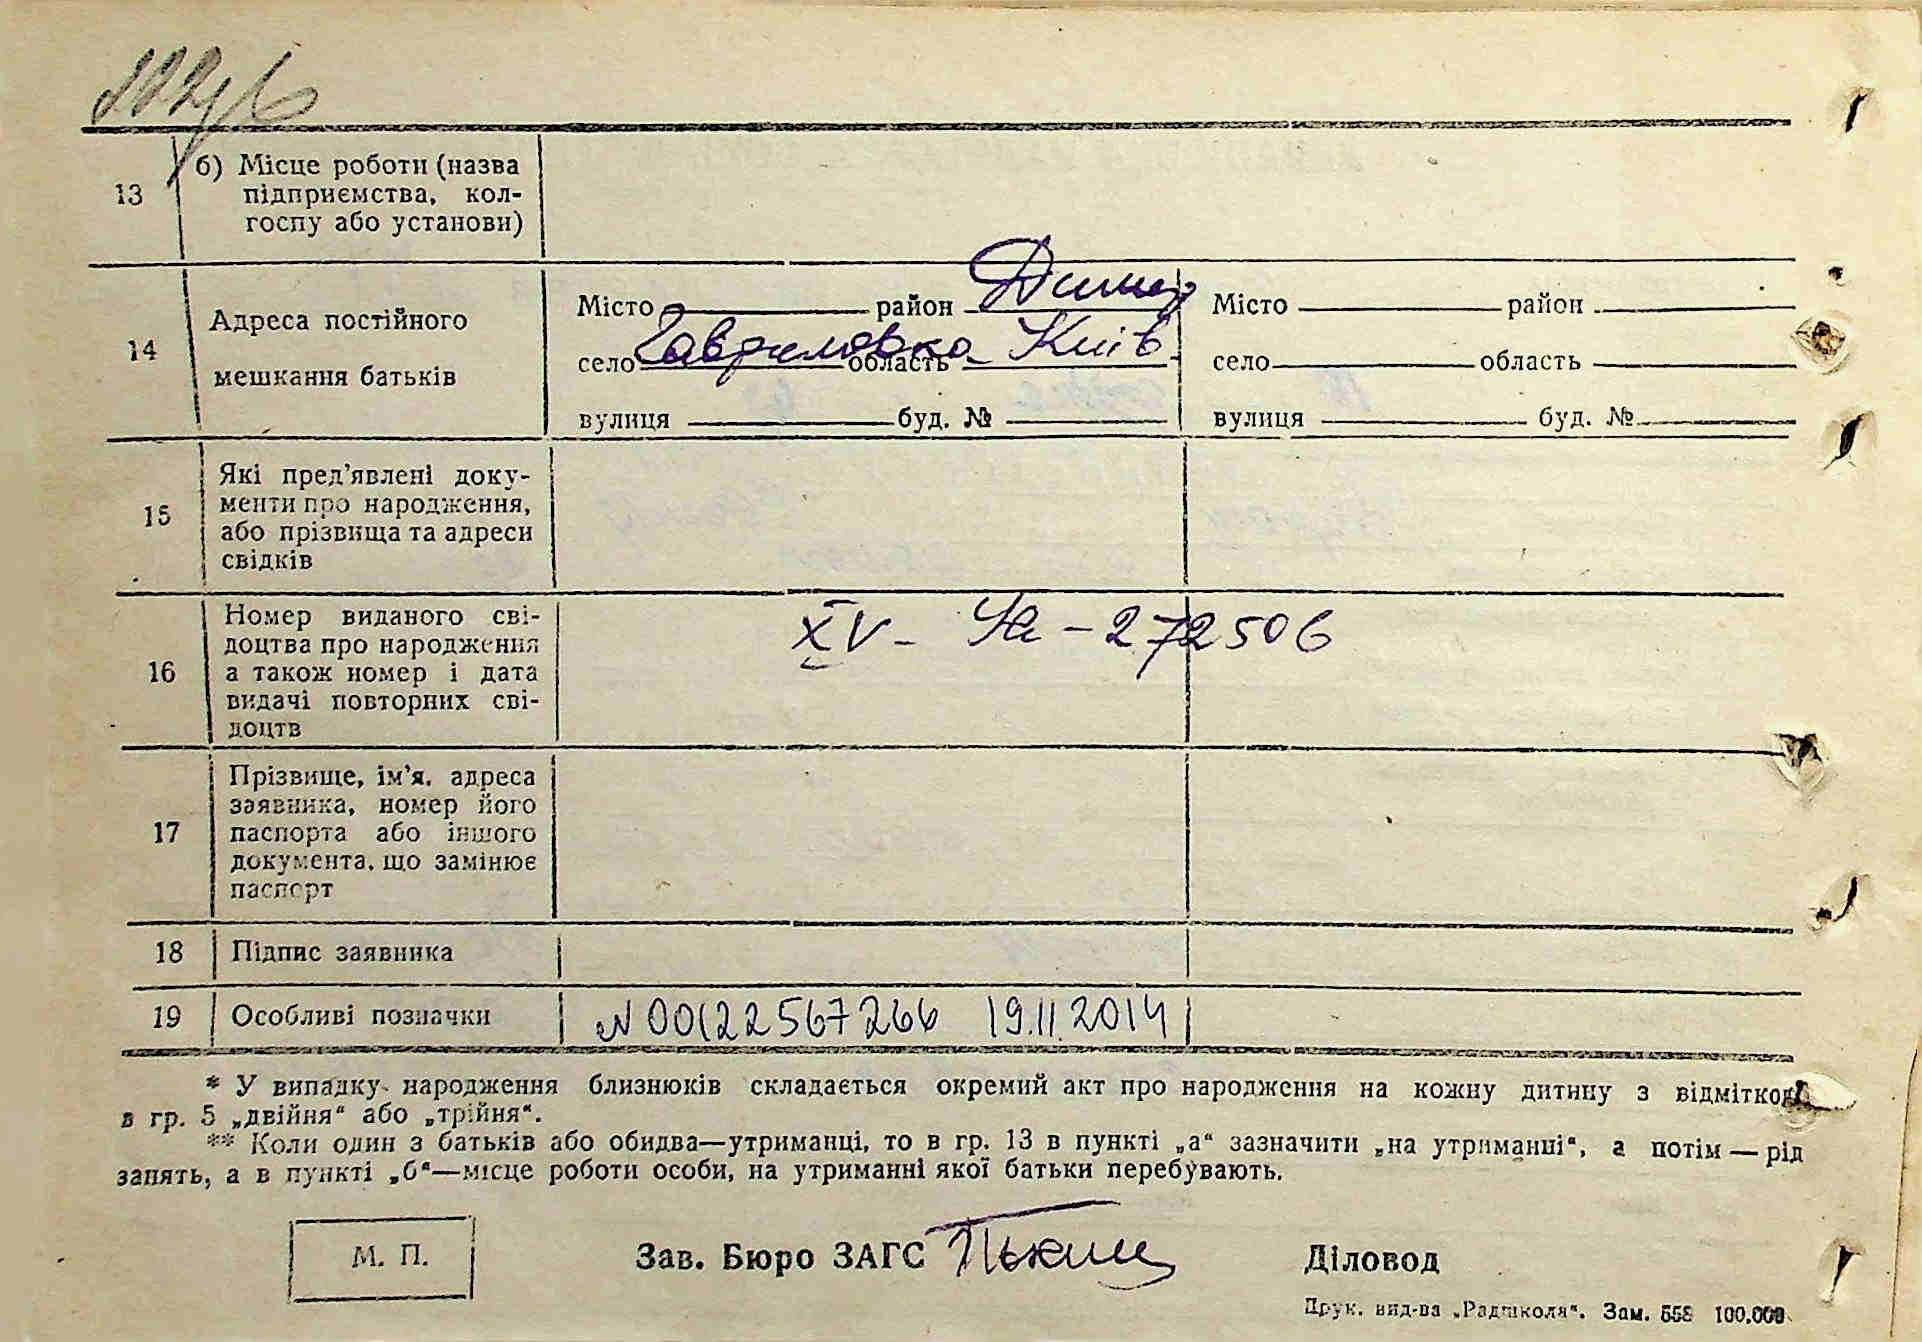 13
б) Місце роботи (назва
підприємства, кол-
госпу або установи)
14
Адреса постійного
мешкання батьків
Місто район Димер
село Гавриловка область Київ
вулиця буд. №
Місто район
село область
вулиця буд. №
15
Які пред’явлені доку-
менти про народження,
або прізвища та адреси
свідків
16
Номер виданого сві-
доцтва про народження
а також номер і дата
видачі повторних сві-
доцтв
XV - УК - 272506
17
Прізвище, ім’я, адреса
заявника, номер його
паспорта або іншого
документа, що замінює
паспорт
18
Підпис заявника
19
Особливі позначки
N 00122567266 19.11.2014
* У випадку народження близнюків складається окремий акт про народження на кожну дитину з відміткою
в гр. 5 „двійня“ або „трійня“.
** Коли один з батьків або обидва—утриманці, то в гр. 13 в пункті „а“ зазначити „на утриманні“, а потім — рід
занять, а в пункті „б“—місце роботи особи, на утриманні якої батьки перебувають.
М. П.
Зав. Бюро ЗАГС
Діловод
Друк. вид-ва „Радшкола“. Зам. 558 100.000